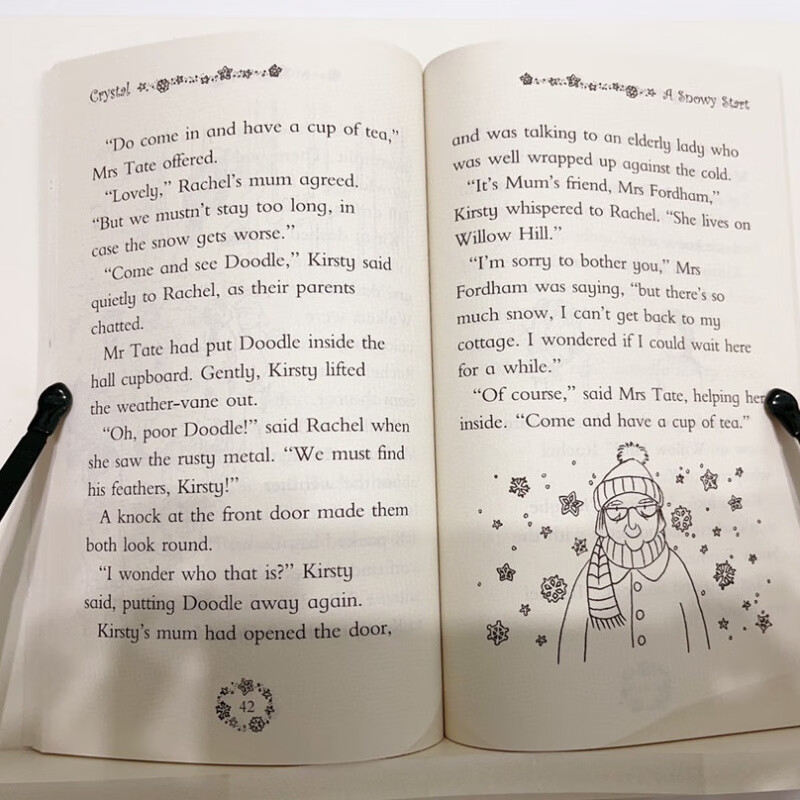 Crystal
“Do come in and have a cup of tea,”
Mrs Tate offered.
“Lovely,” Rachel’s mum agreed.
“But we mustn’t stay too long, in
case the snow gets worse.”
“Come and see Doodle,” Kirsty said
quietly to Rachel, as their parents
chatted.
Mr Tate had put Doodle inside the
hall cupboard. Gently, Kirsty lifted
the weather-vane out.
“Oh, poor Doodle!” said Rachel when
she saw the rusty metal. “We must find
his feathers, Kirsty!”
A knock at the front door made them
both look round.
“I wonder who that is?” Kirsty
said, putting Doodle away again.
Kirsty’s mum had opened the door,
42
A Snowy Start
and was talking to an elderly lady who
was well wrapped up against the cold.
“It’s Mum’s friend, Mrs Fordham,”
Kirsty whispered to Rachel. “She lives on
Willow Hill.”
“I’m sorry to bother you,” Mrs
Fordham was saying, “but there’s so
much snow, I can’t get back to my
cottage. I wondered if I could wait here
for a while.”
“Of course,” said Mrs Tate, helping her
inside. “Come and have a cup of tea.”